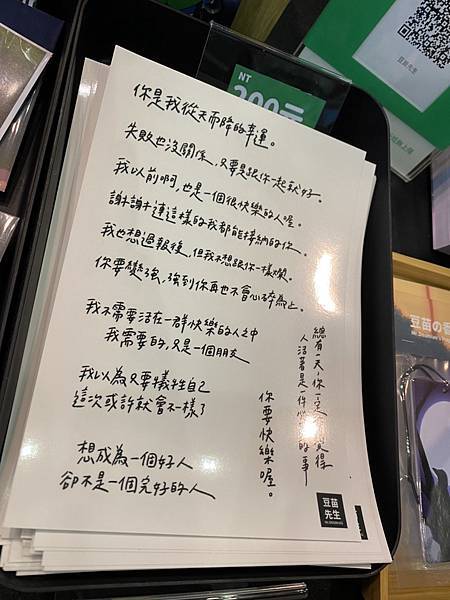 NT
200元
豆苗先生
你是我從天而降的幸運。
失敗也沒關係，只要是跟你一起就好。
我以前啊，也是一個很快樂的人喔。
謝謝連這樣的我都能接納的你。
我也想過報復，但我不想跟你一樣爛。
你要變強，強到你再也不會心碎為止。
我不需要活在一群快樂的人之中
我需要的，只是一個朋友
我以為只要犧牲自己
這次或許就會不一樣了
想成為一個好人
卻不是一個完好的人
總有一天，你一定
覺得
人活著是一件
的事
你要快樂喔。
豆苗
先生
豆苗の香